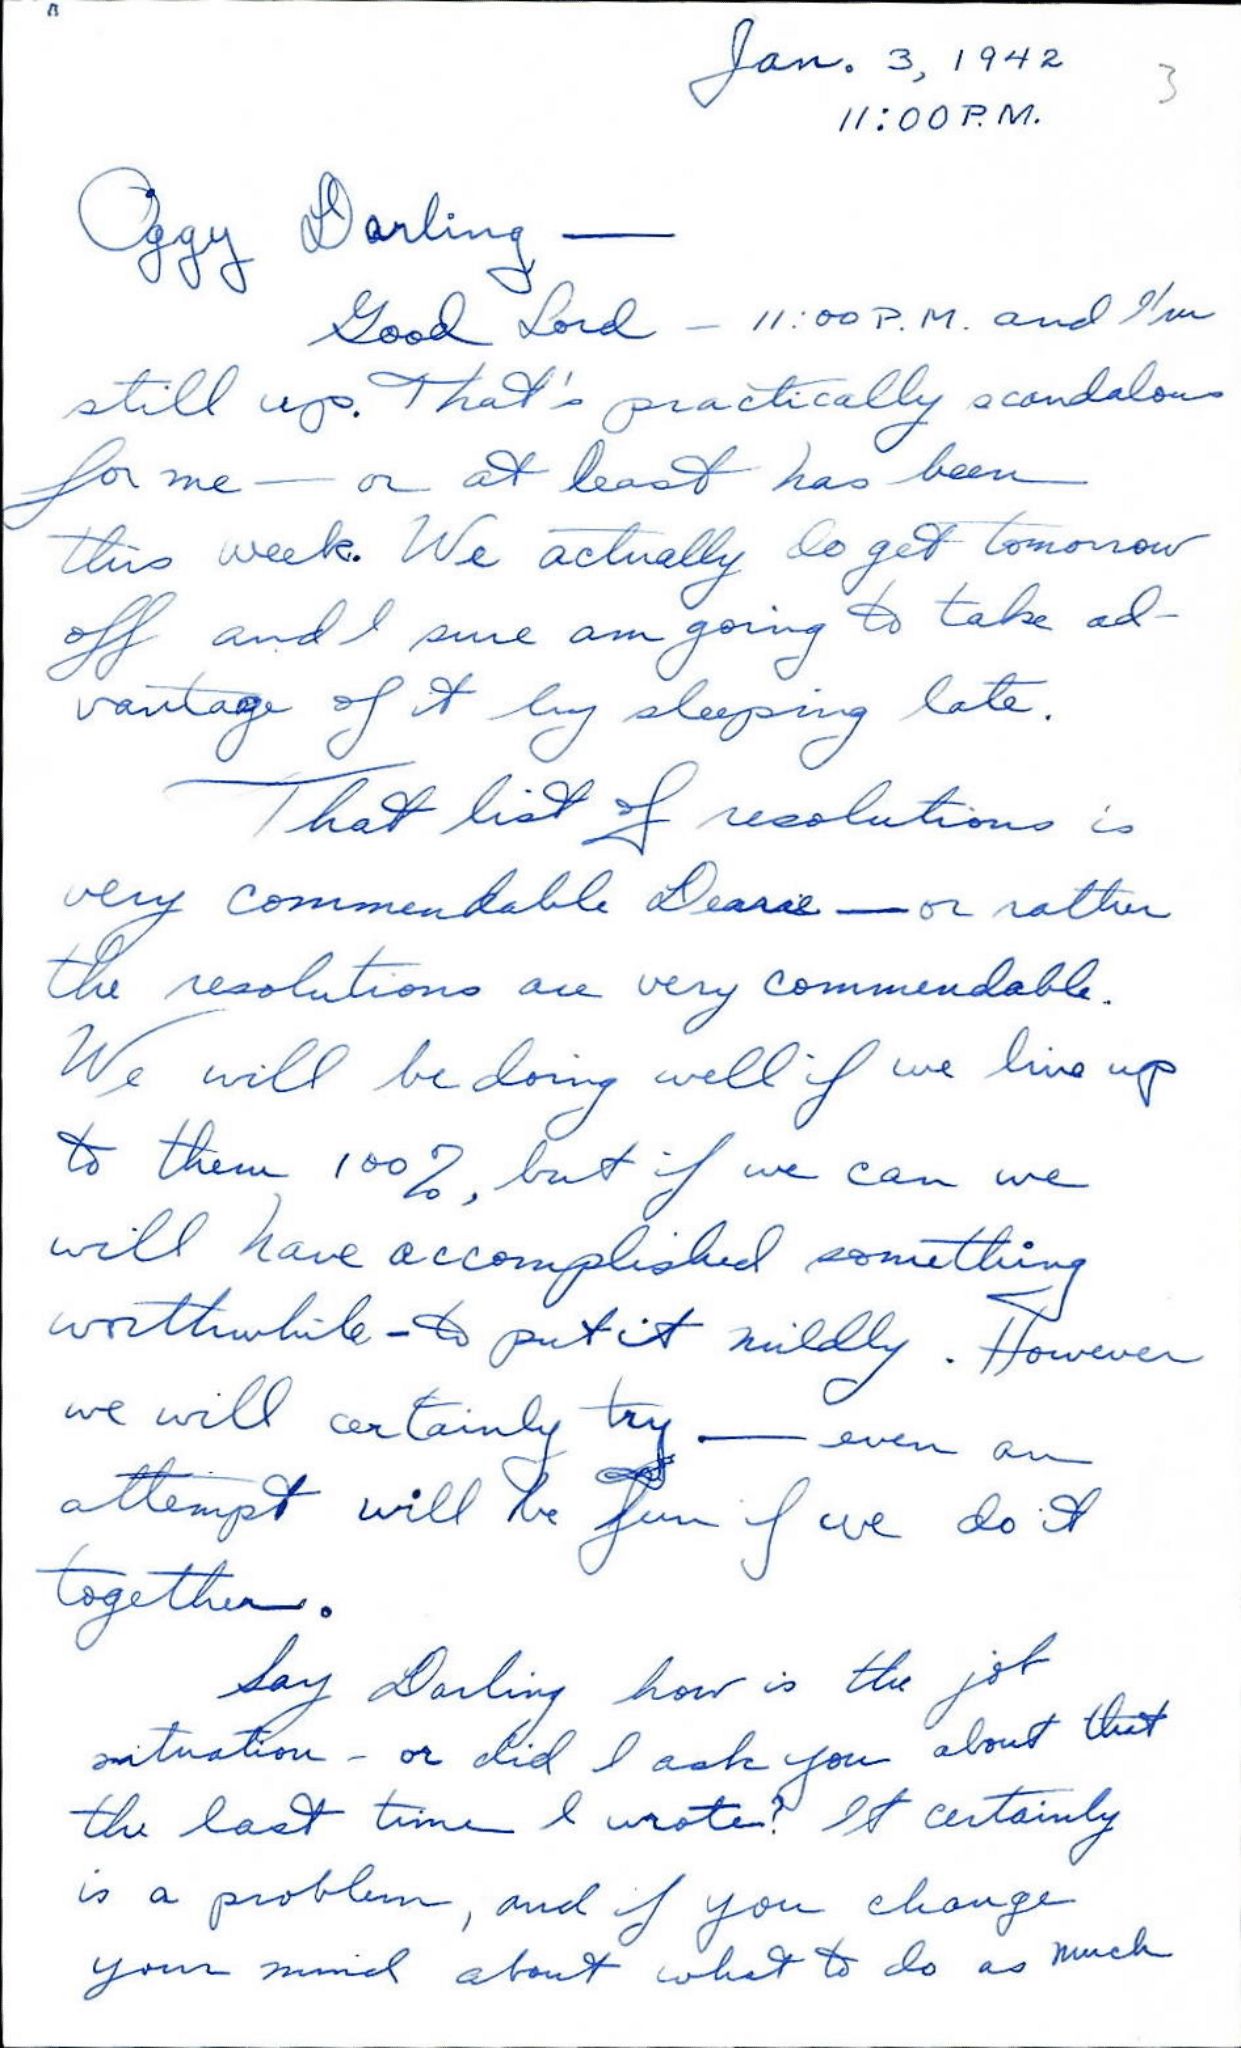 Jan. 3, 1942
3
11:00 P.M.
Oggy Darling —
Good Lord – 11:00 P.M. and I'm
still up. That's practically scandalous
for me — or at least has been
this week. We actually do get tomorrow
off and I sure am going to take ad-
vantage of it by sleeping late.
That list of resolutions is
very commendable Dearie — or rather
the resolutions are very commendable.
We will be doing well if we live up
to them 100%, but if we can we
will have accomplished something
worthwhile – to put it mildly. However
we will certainly try — even an
attempt will be fun if we do it
together.
Say Darling how is the job
situation – or did I ask you about that
the last time I wrote? It certainly
is a problem, and if you change
your mind about what to do as much